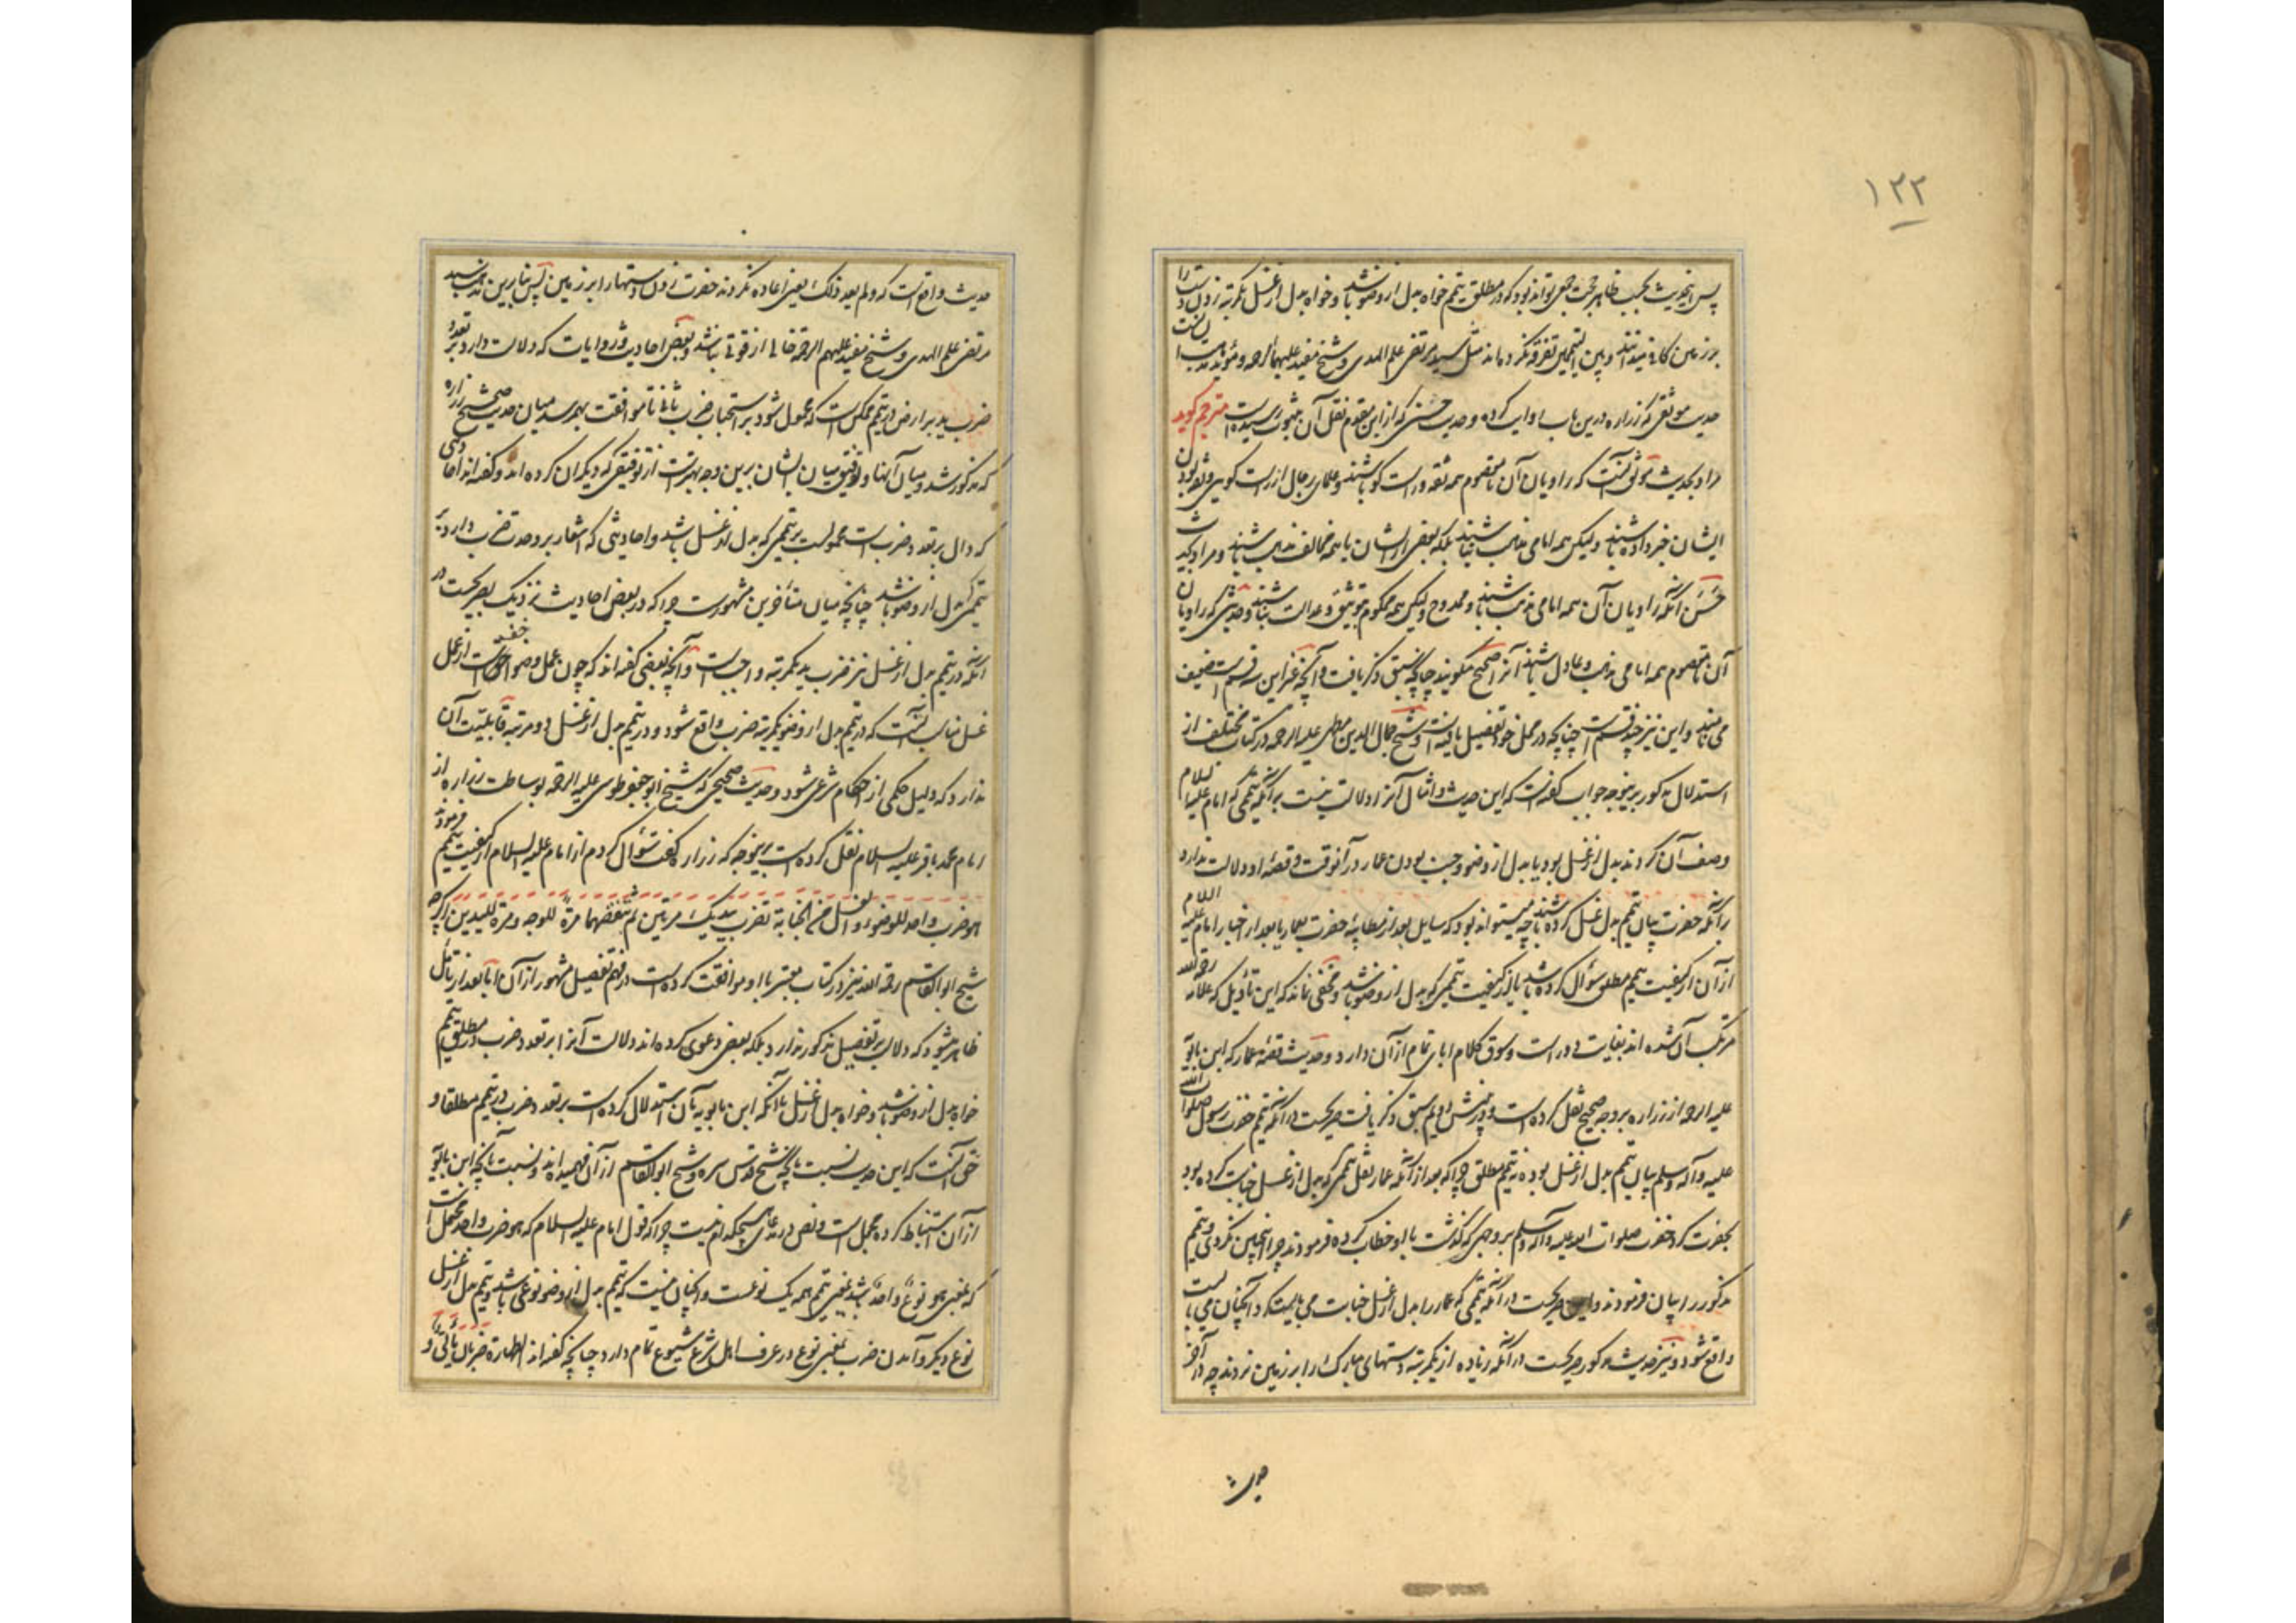 ۱۲۲
پس این حدیث بحسب ظاهر حجت جمعی تواند بود که در مطلق تیمم خواه بدل از وضو باشد و خواه بدل از غسل یکمرتبه زدن دست را
بر زمین کافی میدانند و بین التیممین تفرقه نکرده‌اند مثل سید مرتضی علم الهدی و شیخ مفید علیهما الرحمه و مؤید مذهب ایشانست
حدیث موثقی که زراره درین باب روایت کرده و حدیث حسنی که از این مقوم نقل آن بثبوت رسیده است مترجم کوید
مراد بحدیث موثق آنست که راویان آن تا معصوم همه ثقه و راست کو باشند و علمای رجال از راست کویی و ثقه بودن
ایشان خبر داده باشند ولیکن همه امامی مذهب نباشند بلکه بعضی از ایشان یا همه مخالف مذهب باشند و مراد بحدیث
حسن آنکه راویان آن همه امامی مذهب باشند و ممدوح ولیکن همه محکوم بتوثیق و عدالت نباشند و حدیثی که راویان
آن تا معصوم همه امامی مذهب و عادل باشند آنرا صحیح میکویند چنانچه سبق ذکر یافت و آنچه غیر این سه قسم است ضعیف
می‌نامند و این نیز چند قسم است چنانچه در محل خود تفصیل یافته است و شیخ جمال الدین مطهر علیه الرحمه در کتاب مختلف از
استدلال مذکور برینوجه جواب گفته است که این حدیث و امثال آنرا دلالت نیست بر آنکه تیممی که امام علیه السلام
وصف آن کردند بدل از غسل بود یا بدل از وضو و جنب بودن عمار در آنوقت و قصهٔ او دلالت ندارد
بر آنکه حضرت بیان تیمم بدل غسل کرده باشند چه میتواند بود که سایل بعد از مطایبهٔ حضرت بعمار یا بعد از اخبار امام علیه السلام
از آن از کیفیت تیمم مطلق سؤال کرده باشد یا از کیفیت تیممی که بدل از وضو باشد و مخفی نماند که این تأویل که علامه رحمه الله
مرتکب آن شده اند بغایت دور است و سوق کلام ابای تمام از آن دارد و حدیث قصهٔ عمار که ابن بابویه
علیه الرحمه از زراره بر وجه صحیح نقل کرده است و پیش ازین هم سبق ذکر یافت صریحست در آنکه تیمم حضرت رسول صلوات الله
علیه و آله و سلم بیان تیمم بدل از غسل بوده نه تیمم مطلق چرا که بعد از آنکه عمار نقل تیممی که بدل از غسل جنابت کرده بود
بحضرت کرد حضرت صلوات الله علیه و آله و سلم بر وجهی که گذشت با او خطاب کرده فرمودند چرا اینچنین نکردی و تیمم
مذکور را بیان فرمودند و این صریحست در آنکه تیممی که عمار را بدل از غسل جنابت می بایست کرد آنچنان می بایست
واقع شود و نیز حدیث مذکور صریحست در آنکه زیاده از یکمرتبه دستهای مبارک را بر زمین نزدند چه در آخر
حدیث
حدیث واقع است که و لم یعد ذلک یعنی اعاده نکردند حضرت زدن دستها را بر زمین پس بنابرین مذهب سید
مرتضی علم الهدی و شیخ مفید علیهم الرحمه خالی از قوتی نباشد و بعض احادیث و روایات که دلالت دارد بر تعدد
ضرب ید بر ارض در تیمم ممکن است که محمول شود بر استحباب ضرب ثانی تا موافقت بهم رسد میان حدیث صحیح زراره
که مذکور شد و میان آنها و توفیق میان ایشان برین وجه بهتر است از توفیقی که دیگران کرده اند و گفته اند احادیثی
که دال بر تعدد ضرب است محمولست بر تیممی که بدل از غسل باشد و احادیثی که اشعار بر وحدت ضرب دارد بر
تیممی که بدل از وضو باشد چنانچه میان متأخرین مشهور است چرا که در بعض احادیث نزدیک بصریحست در
آنکه در تیمم بدل از غسل نیز ضرب ید یکمرتبه واجبست و آنچه بعضی گفته اند که چون عمل وضو اخف است از عمل
غسل مناسب آنست که در تیمم بدل از وضو یکمرتبه ضرب واقع شود و در تیمم بدل از غسل دو مرتبه قابلیت آن
ندارد که دلیل حکمی از احکام شرعی شود و حدیث صحیحی که شیخ ابو جعفر طوسی علیه الرحمه بوساطت زراره از
امام محمد باقر علیه السلام نقل کرده است برینوجه که زراره گفت سؤال کردم از امام علیه السلام از کیفیت تیمم فرمودند
هو ضرب واحد للوضوء و الغسل من الجنابة تضرب بیدیک مرتین ثم تنفضهما مرة للوجه و مرة للیدین اگر چه
شیخ ابو القاسم رحمه الله نیز در کتاب معتبر با او موافقت کرده است در فهم تفصیل مشهور از آن اما بعد از تأمل
ظاهر میشود که دلالت بر تفصیل مذکور ندارد بلکه بعضی دعوی کرده اند دلالت آنرا بر تعدد ضرب در مطلق تیمم
خواه بدل از وضو باشد و خواه بدل از غسل با آنکه ابن بابویه بآن استدلال کرده است بر تعدد ضرب در تیمم مطلقا و
حق آنست که این حدیث نسبت بآنچه شیخ قدس سره و شیخ ابو القاسم از آن فهمیده اند و نسبت بآنچه ابن بابویه
از آن استنباط کرده مجمل است و نص در مدعای هیچکدام نیست چرا که قول امام علیه السلام که هو ضرب واحد محتمل است
که بمعنی هو نوع واحد باشد یعنی تیمم همه یک نوعست و اینچنان نیست که تیمم بدل از وضو نوعی باشد و تیمم بدل از غسل
نوع دیگر و آمدن ضرب بمعنی نوع در عرف اهل شرع شیوع تمام دارد چنانچه گفته اند الطهارة ضربان مائی و